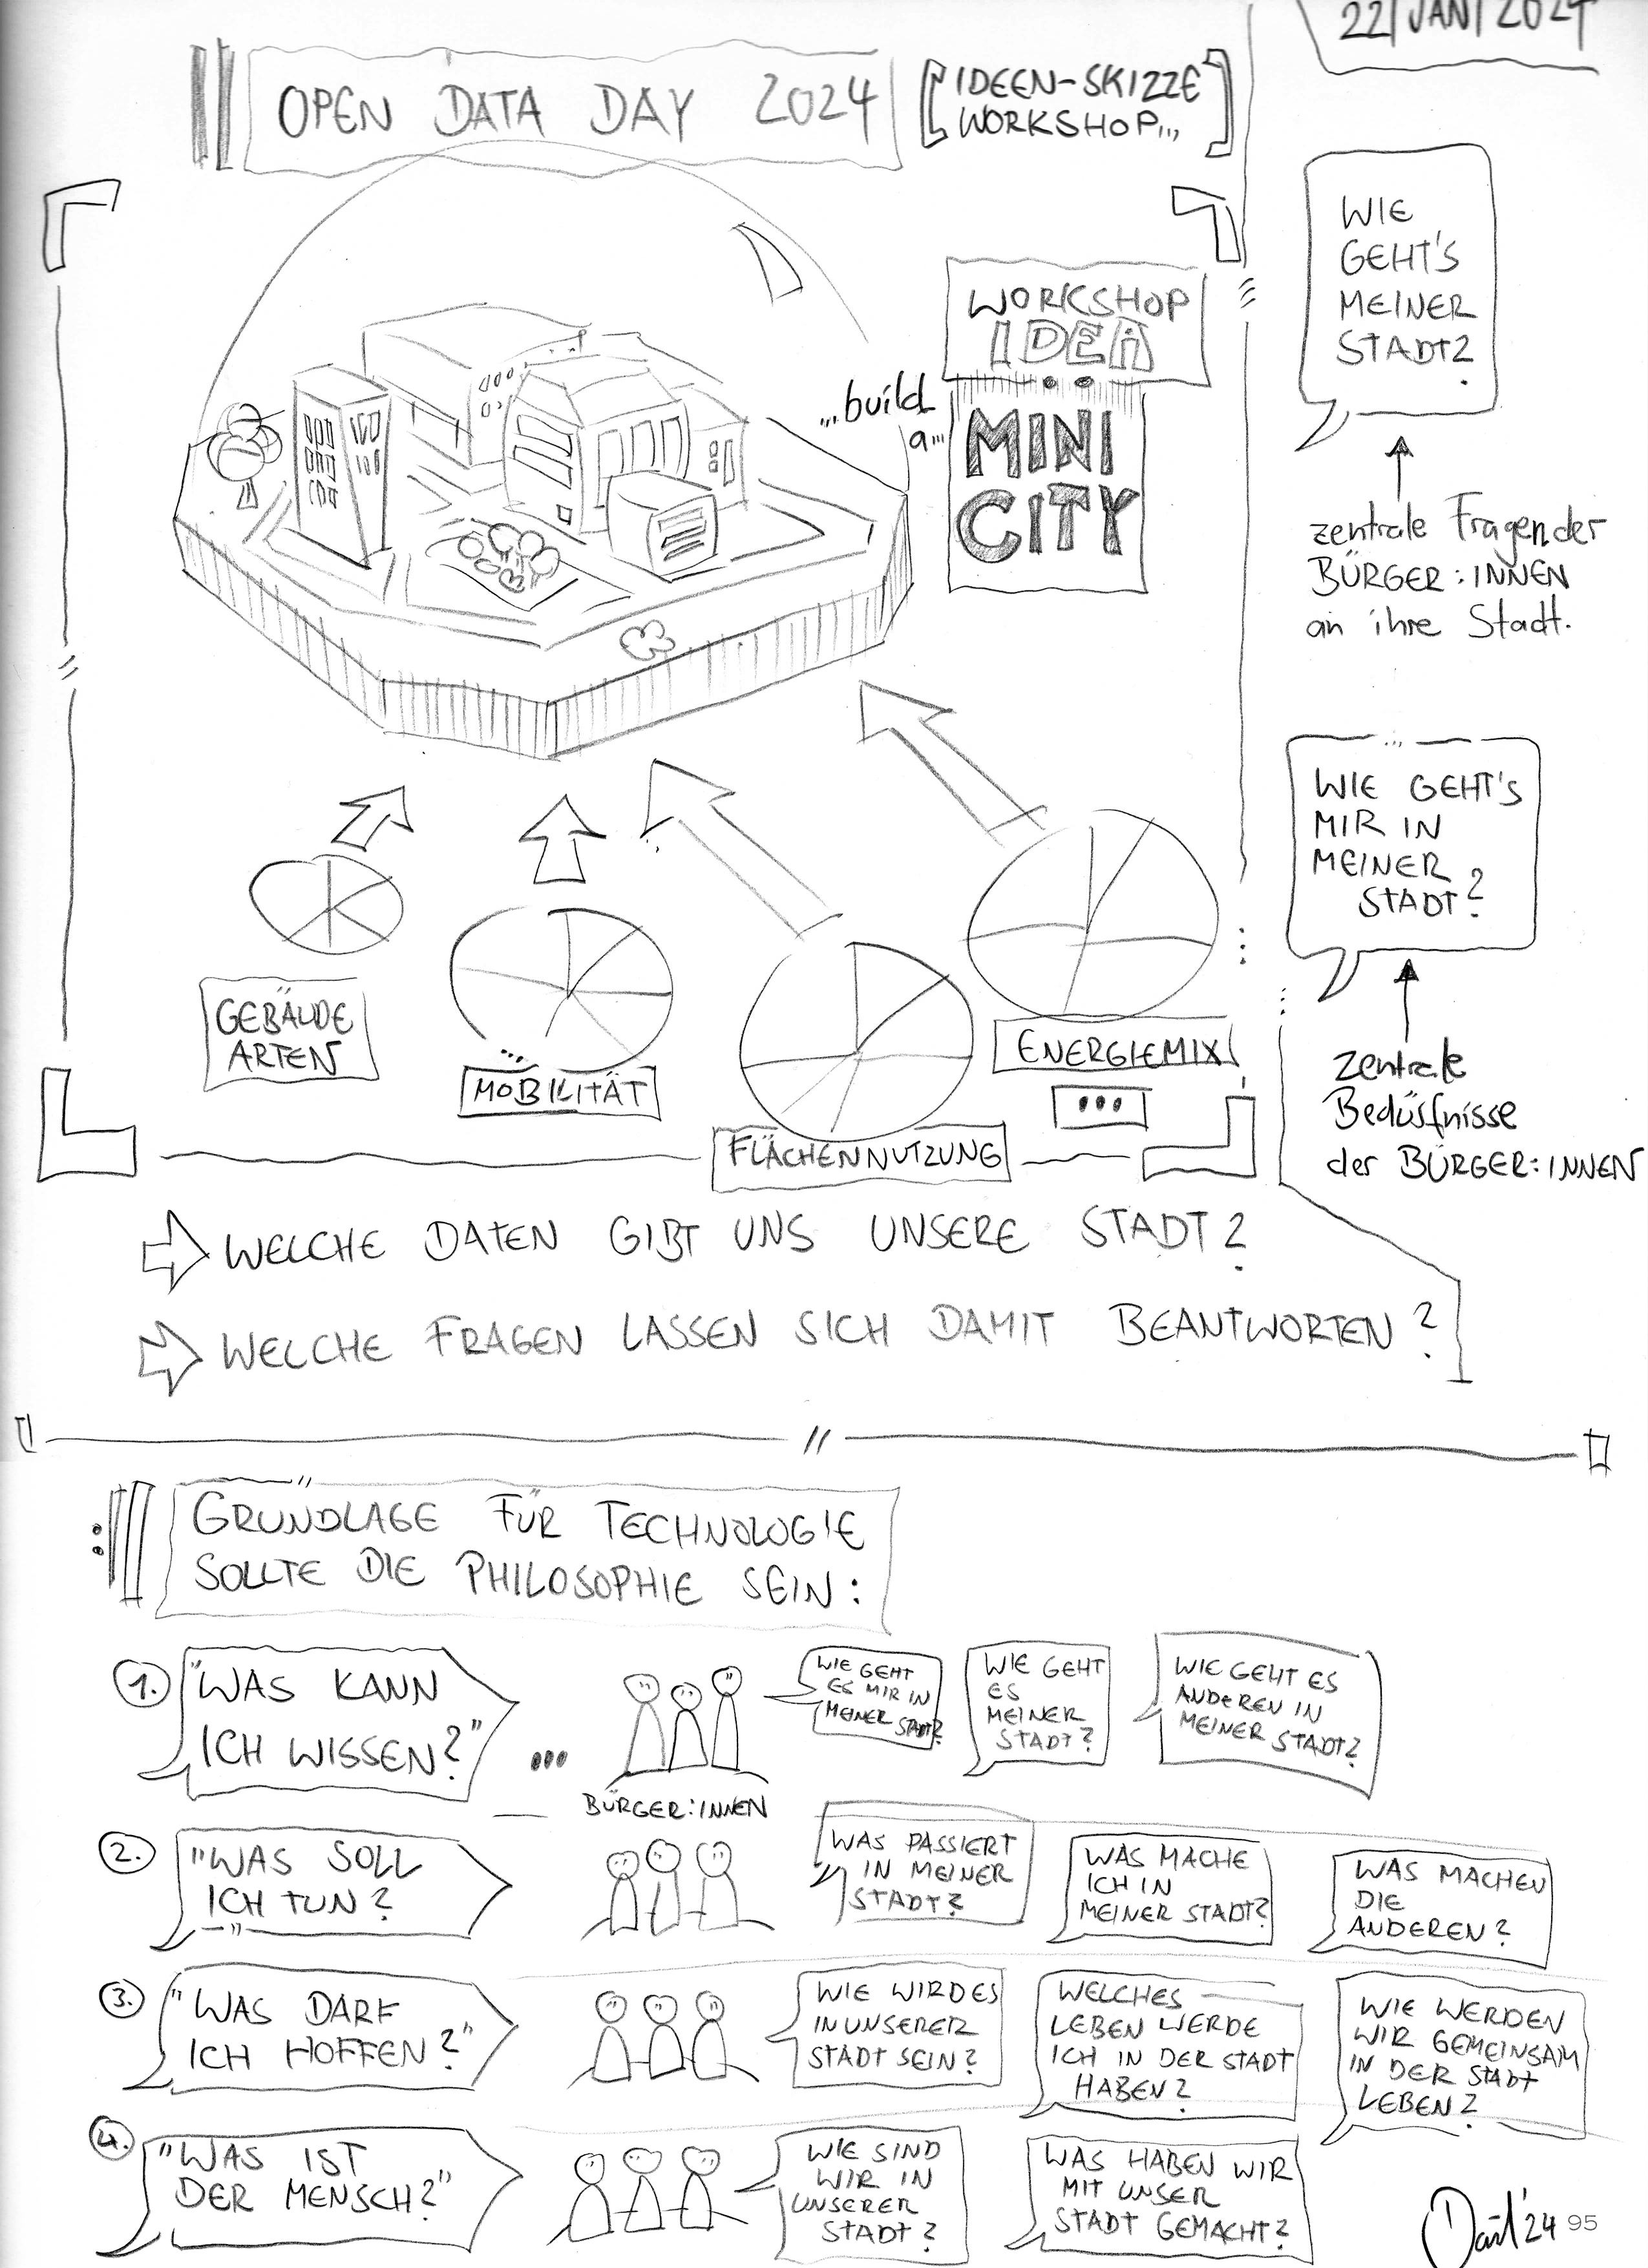 22/JAN/2024
OPEN DATA DAY 2024
IDEEN-SKIZZE
WORKSHOP...
WORKSHOP
IDEA
...build
a...
MINI
CITY
WIE
GEHT'S
MEINER
STADT?
zentrale Fragen der
BÜRGER:INNEN
an ihre Stadt.
WIE GEHT'S
MIR IN
MEINER
STADT?
zentrale
Bedürfnisse
der BÜRGER:INNEN
GEBÄUDE
ARTEN
...
MOBILITÄT
FLÄCHENNUTZUNG
ENERGIEMIX
...
WELCHE DATEN GIBT UNS UNSERE STADT?
WELCHE FRAGEN LASSEN SICH DAMIT BEANTWORTEN?
GRUNDLAGE FÜR TECHNOLOGIE
SOLLTE DIE PHILOSOPHIE SEIN:
1.
"WAS KANN
ICH WISSEN?"
...
BÜRGER:INNEN
WIE GEHT
ES MIR IN
MEINER STADT?
WIE GEHT
ES
MEINER
STADT?
WIE GEHT ES
ANDEREN IN
MEINER STADT?
2.
"WAS SOLL
ICH TUN?"
WAS PASSIERT
IN MEINER
STADT?
WAS MACHE
ICH IN
MEINER STADT?
WAS MACHEN
DIE
ANDEREN?
3.
"WAS DARF
ICH HOFFEN?"
WIE WIRD ES
IN UNSERER
STADT SEIN?
WELCHES
LEBEN WERDE
ICH IN DER STADT
HABEN?
WIE WERDEN
WIR GEMEINSAM
IN DER STADT
LEBEN?
4.
"WAS IST
DER MENSCH?"
WIE SIND
WIR IN
UNSERER
STADT?
WAS HABEN WIR
MIT UNSER
STADT GEMACHT?
'24 95